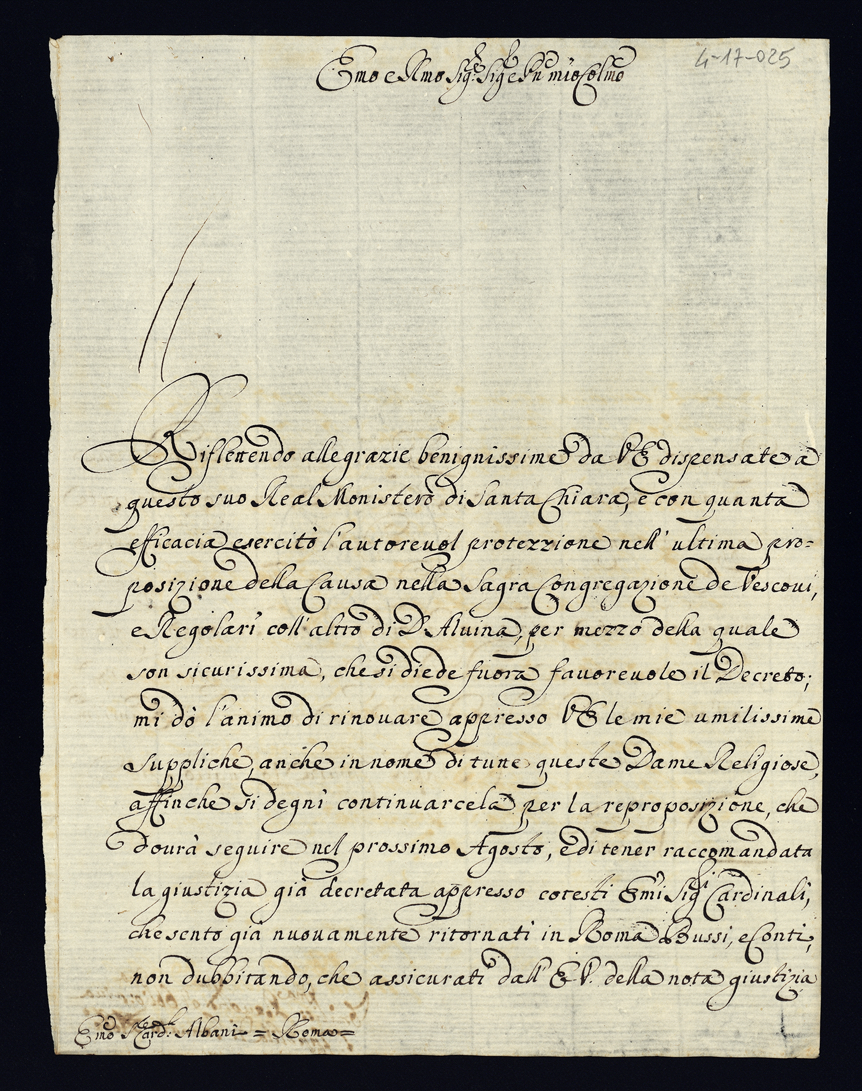 4-17-025
Emo e Rmo Sig.r Sig.r e Pn mio Colmo
Riflettendo alle grazie benignissime da VE dispensate a
questo suo Real Monistero di Santa Chiara, e con quanta
efficacia esercitò l'autorevol protezzione nell'ultima pro=
posizione della Causa nella Sagra Congregazione de Vescovi,
e Regolari coll'altro di D. Alvina, per mezzo della quale
son sicurissima, che si diede fuora favorevole il Decreto;
mi dò l'animo di rinovare appresso VE le mie umilissime
suppliche, anche in nome di tutte queste Dame Religiose,
affinche si degni continuarcela per la reproposizione, che
dourà seguire nel prossimo Agosto, e di tener raccomandata
la giustizia già decretata appresso cotesti Emi Sig.ri Cardinali,
che sento già nuovamente ritornati in Roma Bussi, e Conti,
non dubbitando, che assicurati dall'E V. della nota giustizia
Emo Card: Albani = Roma=